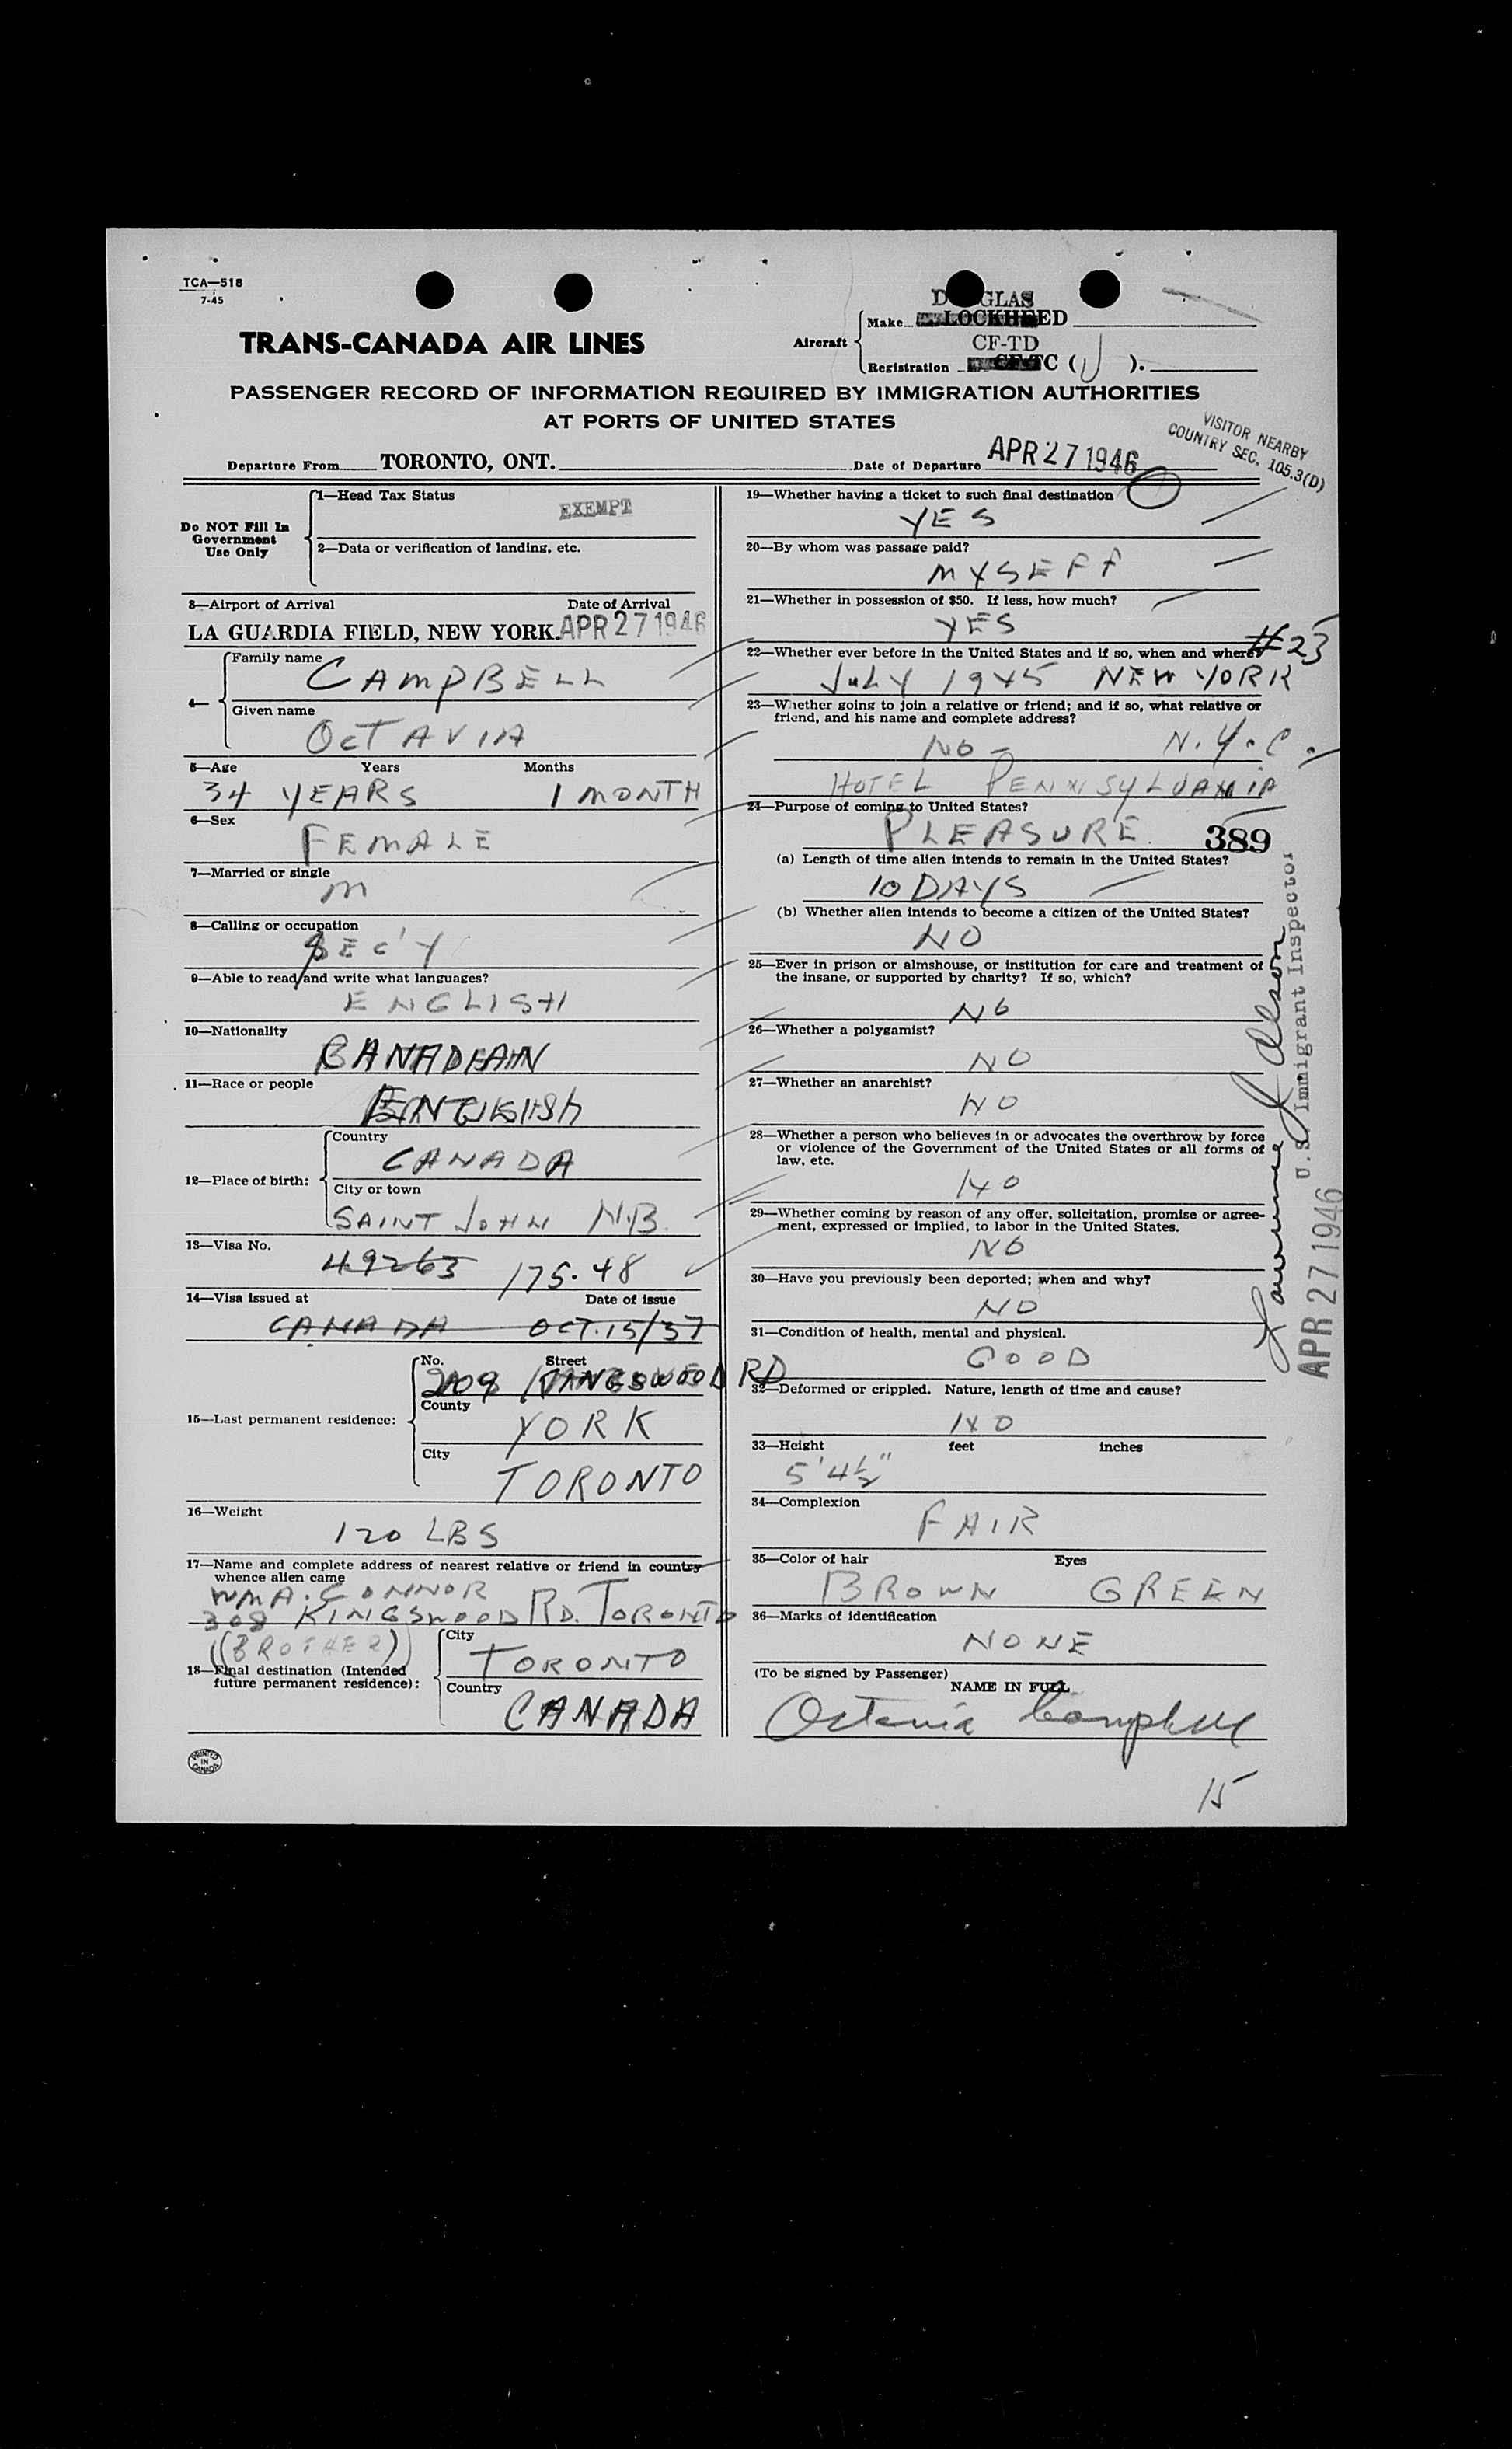 TCA—518
7-45
TRANS-CANADA AIR LINES
Aircraft
Make
DOUGLAS
LOCKHEED
Registration
CF-TD
CF-TC ( J ).
PASSENGER RECORD OF INFORMATION REQUIRED BY IMMIGRATION AUTHORITIES
AT PORTS OF UNITED STATES
VISITOR NEARBY
COUNTRY SEC. 105.3(D)
Departure From TORONTO, ONT. Date of Departure APR 27 1946
Do NOT Fill In
Government
Use Only
1—Head Tax Status
EXEMPT
2—Data or verification of landing, etc.
3—Airport of Arrival Date of Arrival
LA GUARDIA FIELD, NEW YORK. APR 27 1946
4—
Family name
CAMPBELL
Given name
OCTAVIA
5—Age Years Months
34 YEARS 1 MONTH
6—Sex
FEMALE
7—Married or single
M
8—Calling or occupation
SEC'Y
9—Able to read and write what languages?
ENGLISH
10—Nationality
CANADIAN
11—Race or people
ENGLISH
12—Place of birth:
Country
CANADA
City or town
SAINT JOHN N.B.
13—Visa No.
49263 175.48
14—Visa issued at Date of issue
CANADA OCT. 15/37
15—Last permanent residence:
No. Street
KINGSWOOD RD
County
YORK
City
TORONTO
16—Weight
120 LBS
17—Name and complete address of nearest relative or friend in country
whence alien came
WM A. CONNOR
308 KINGSWOOD RD. TORONTO
(BROTHER)
18—Final destination (Intended
future permanent residence):
City
TORONTO
Country
CANADA
PRINTED
IN
CANADA
19—Whether having a ticket to such final destination
YES
20—By whom was passage paid?
MYSELF
21—Whether in possession of $50. If less, how much?
YES
22—Whether ever before in the United States and if so, when and where?
#23
JULY 1945 NEW YORK
23—Whether going to join a relative or friend; and if so, what relative or
friend, and his name and complete address?
NO - N.Y.C.
HOTEL PENNSYLVANIA
24—Purpose of coming to United States?
PLEASURE
389
(a) Length of time alien intends to remain in the United States?
10 DAYS
(b) Whether alien intends to become a citizen of the United States?
NO
25—Ever in prison or almshouse, or institution for care and treatment of
the insane, or supported by charity? If so, which?
NO
26—Whether a polygamist?
NO
27—Whether an anarchist?
NO
28—Whether a person who believes in or advocates the overthrow by force
or violence of the Government of the United States or all forms of
law, etc.
NO
29—Whether coming by reason of any offer, solicitation, promise or agree-
ment, expressed or implied, to labor in the United States.
NO
30—Have you previously been deported; when and why?
NO
31—Condition of health, mental and physical.
GOOD
32—Deformed or crippled. Nature, length of time and cause?
NO
33—Height feet inches
5' 4½"
34—Complexion
FAIR
35—Color of hair Eyes
BROWN GREEN
36—Marks of identification
NONE
(To be signed by Passenger)
NAME IN FULL
Octavia Campbell
15
U.S. Immigrant Inspector
APR 27 1946